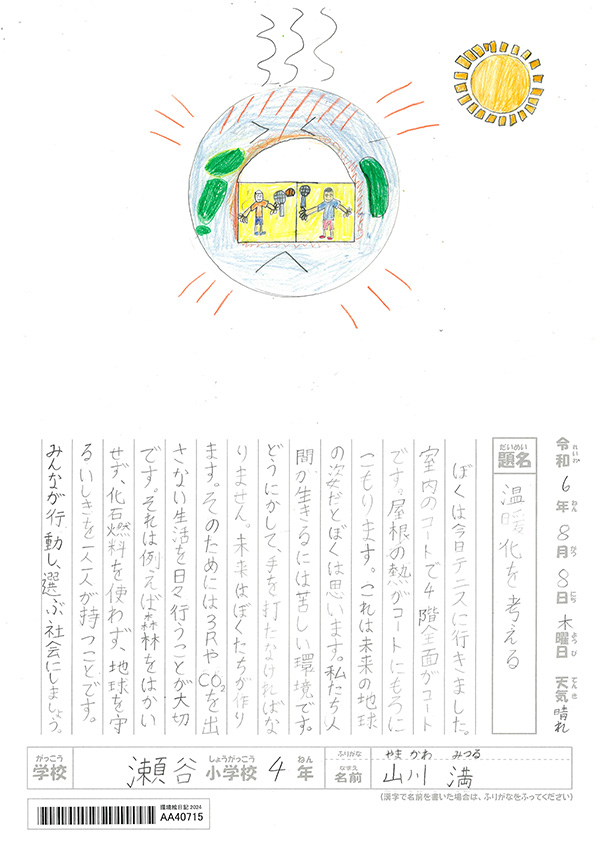 令和6年8月8日木曜日 天気晴れ
れいわ ねん がつ にち ようび てんき
だいめい
題名 温暖化を考える
ぼくは今日テニスに行きました。
室内のコートで4階全面がコート
です。屋根の熱がコートにもろに
こもります。これは未来の地球
の姿だとぼくは思います。私たち人
間が生きるには苦しい環境です。
どうにかして、手を打たなければな
りません。未来はぼくたちが作り
ます。そのためには3RやCO₂を出
さない生活を日々行うことが大切
です。それは例えば森林をはかい
せず、化石燃料を使わず、地球を守
るいしきを一人一人が持つことです。
みんなが行動し、選ぶ社会にしましょう。
がっこう しょうがっこう ねん
学校 瀬谷小学校4年
ふりがな やまかわ みつる
なまえ
名前 山川 満
(漢字で名前を書いた場合は、ふりがなをふってください)
環境絵日記2024
AA40715